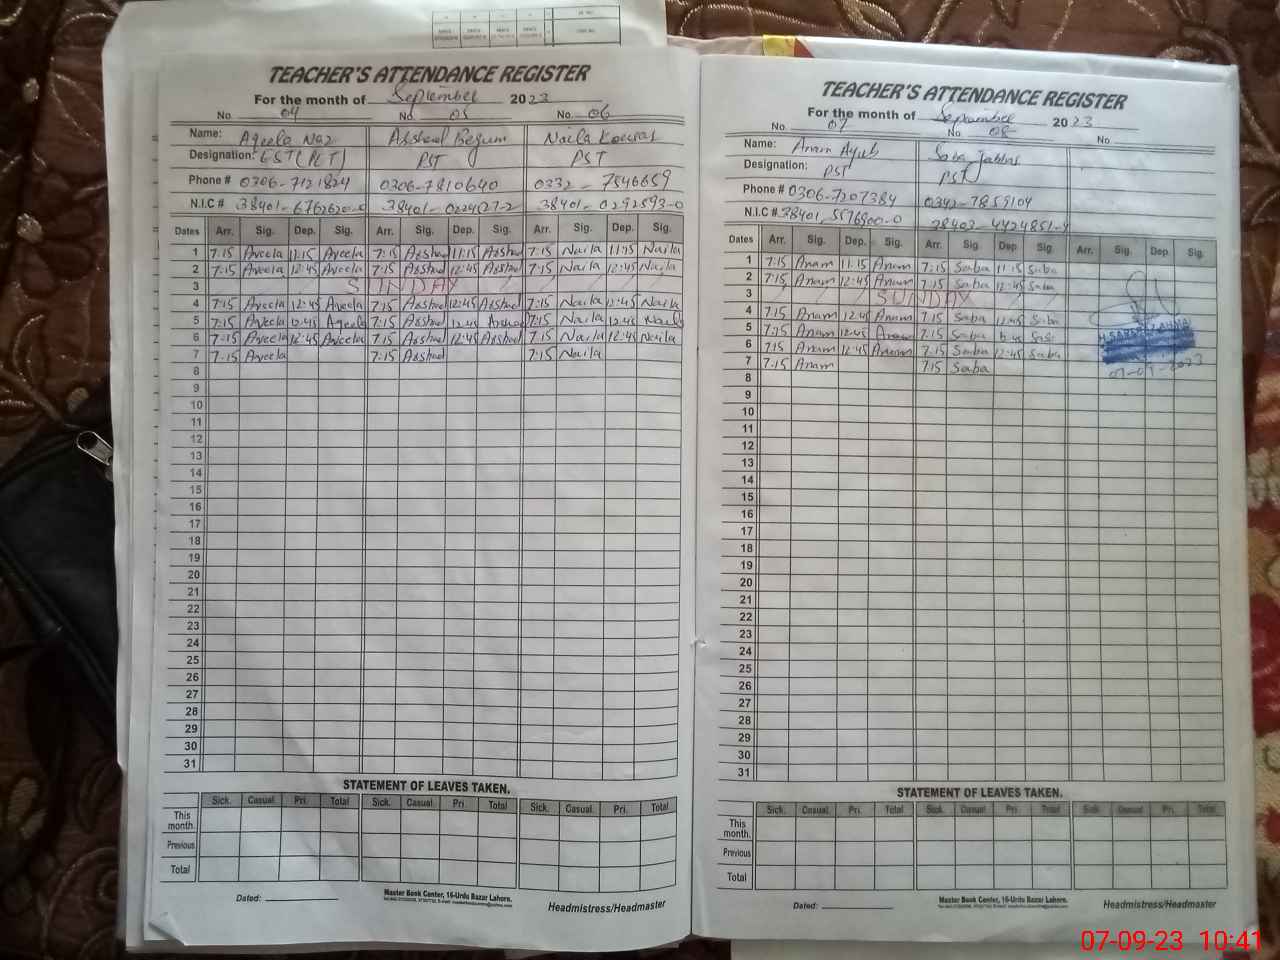 TEACHER'S ATTENDANCE REGISTER
For the month of September 2023
No. 04 No. 05 No. 06
Name: Aqeela Naz Arshad Begum Naila Kousar
Designation: EST(PET) PST PST
Phone # 0306-7121824 0306-7810640 0332-7546659
N.I.C # 38401-6762620-0 38401-0224027-2 38401-0292593-0
Dates Arr. Sig. Dep. Sig. Arr. Sig. Dep. Sig. Arr. Sig. Dep. Sig.
1 7:15 Aqeela 11:15 Aqeela 7:15 Arshad 11:15 Arshad 7:15 Naila 11:15 Naila
2 7:15 Aqeela 12:45 Aqeela 7:15 Arshad 12:45 Arshad 7:15 Naila 12:45 Naila
3 SUNDAY
4 7:15 Aqeela 12:45 Aqeela 7:15 Arshad 12:45 Arshad 7:15 Naila 12:45 Naila
5 7:15 Aqeela 12:45 Aqeela 7:15 Arshad 12:45 Arshad 7:15 Naila 12:45 Naila
6 7:15 Aqeela 12:45 Aqeela 7:15 Arshad 12:45 Arshad 7:15 Naila 12:45 Naila
7 7:15 Aqeela 7:15 Arshad 7:15 Naila
8
9
10
11
12
13
14
15
16
17
18
19
20
21
22
23
24
25
26
27
28
29
30
31
STATEMENT OF LEAVES TAKEN.
Sick. Casual. Pri. Total Sick. Casual. Pri. Total Sick. Casual. Pri. Total
This month.
Previous
Total
Dated:
Master Book Center, 16-Urdu Bazar Lahore.
Headmistress/Headmaster
TEACHER'S ATTENDANCE REGISTER
For the month of September 2023
No. 07 No. 08 No.
Name: Anam Ayub Saba Jabbar
Designation: PST PST
Phone # 0306-7207384 0342-7859104
N.I.C # 38401-5576800-0 38403-4424851-4
Dates Arr. Sig. Dep. Sig. Arr. Sig. Dep. Sig. Arr. Sig. Dep. Sig.
1 7:15 Anam 11:15 Anam 7:15 Saba 11:15 Saba
2 7:15 Anam 12:45 Anam 7:15 Saba 12:45 Saba
3 SUNDAY
4 7:15 Anam 12:45 Anam 7:15 Saba 12:45 Saba
5 7:15 Anam 12:45 Anam 7:15 Saba Saba
6 7:15 Anam 12:45 Anam 7:15 Saba 12:45 Saba
7 7:15 Anam 7:15 Saba
07-09-2023
8
9
10
11
12
13
14
15
16
17
18
19
20
21
22
23
24
25
26
27
28
29
30
31
STATEMENT OF LEAVES TAKEN.
Sick. Casual. Pri. Total Sick. Casual. Pri. Total Sick. Casual. Pri. Total
This month.
Previous
Total
Dated:
Master Book Center, 16-Urdu Bazar Lahore.
Headmistress/Headmaster
07-09-23 10:41